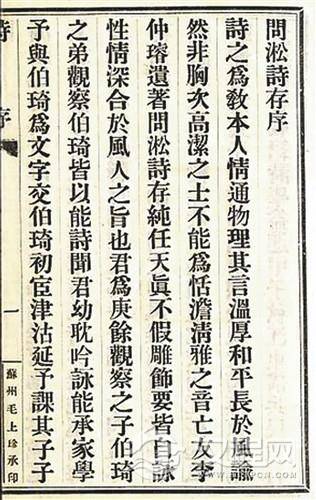 問淞詩存序
詩之爲敎本人情通物理其言溫厚和平長於風諭
然非胸次高潔之士不能爲恬澹清雅之音亡友李
仲璿遺著問淞詩存純任天眞不假雕飾要皆自詠
性情深合於風人之旨也君爲庚餘觀察之子伯琦
之弟觀察伯琦皆以能詩聞君幼耽吟詠能承家學
予與伯琦爲文字交伯琦初宦津沽延予課其子子
詩 序
一
蘇州毛上珍承印